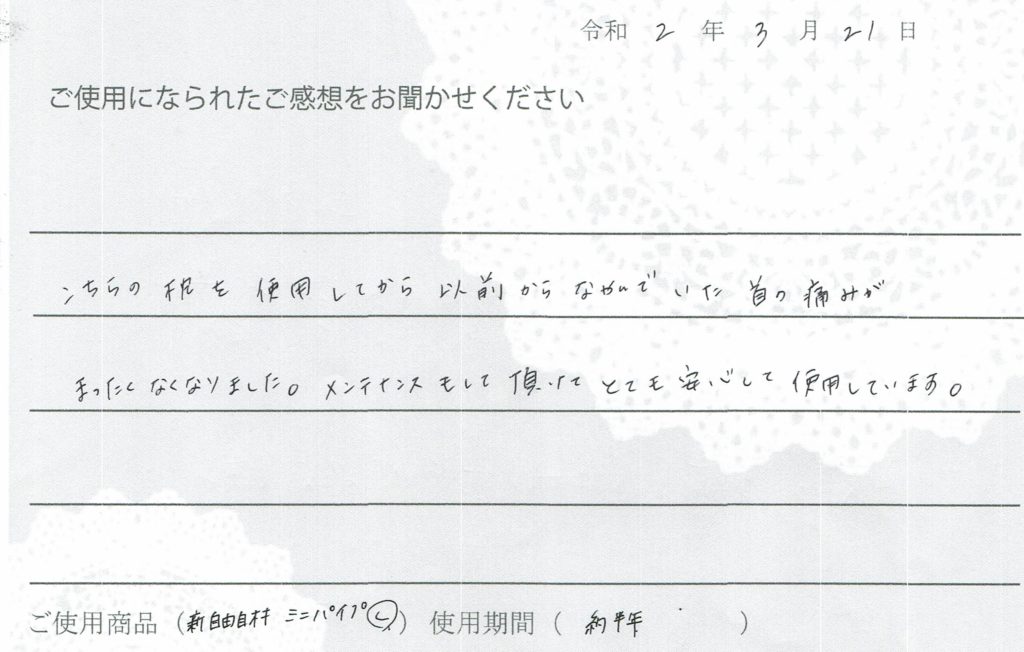 令和 2 年 3 月 21 日
ご使用になられたご感想をお聞かせください
こちらの枕を使用してから以前からなやんでいた首の痛みが
まったくなくなりました。メンテナンスもして頂けてとても安心して使用しています。
ご使用商品（新自由自材 ミニパイプⓁ） 使用期間（ 約半年 ）